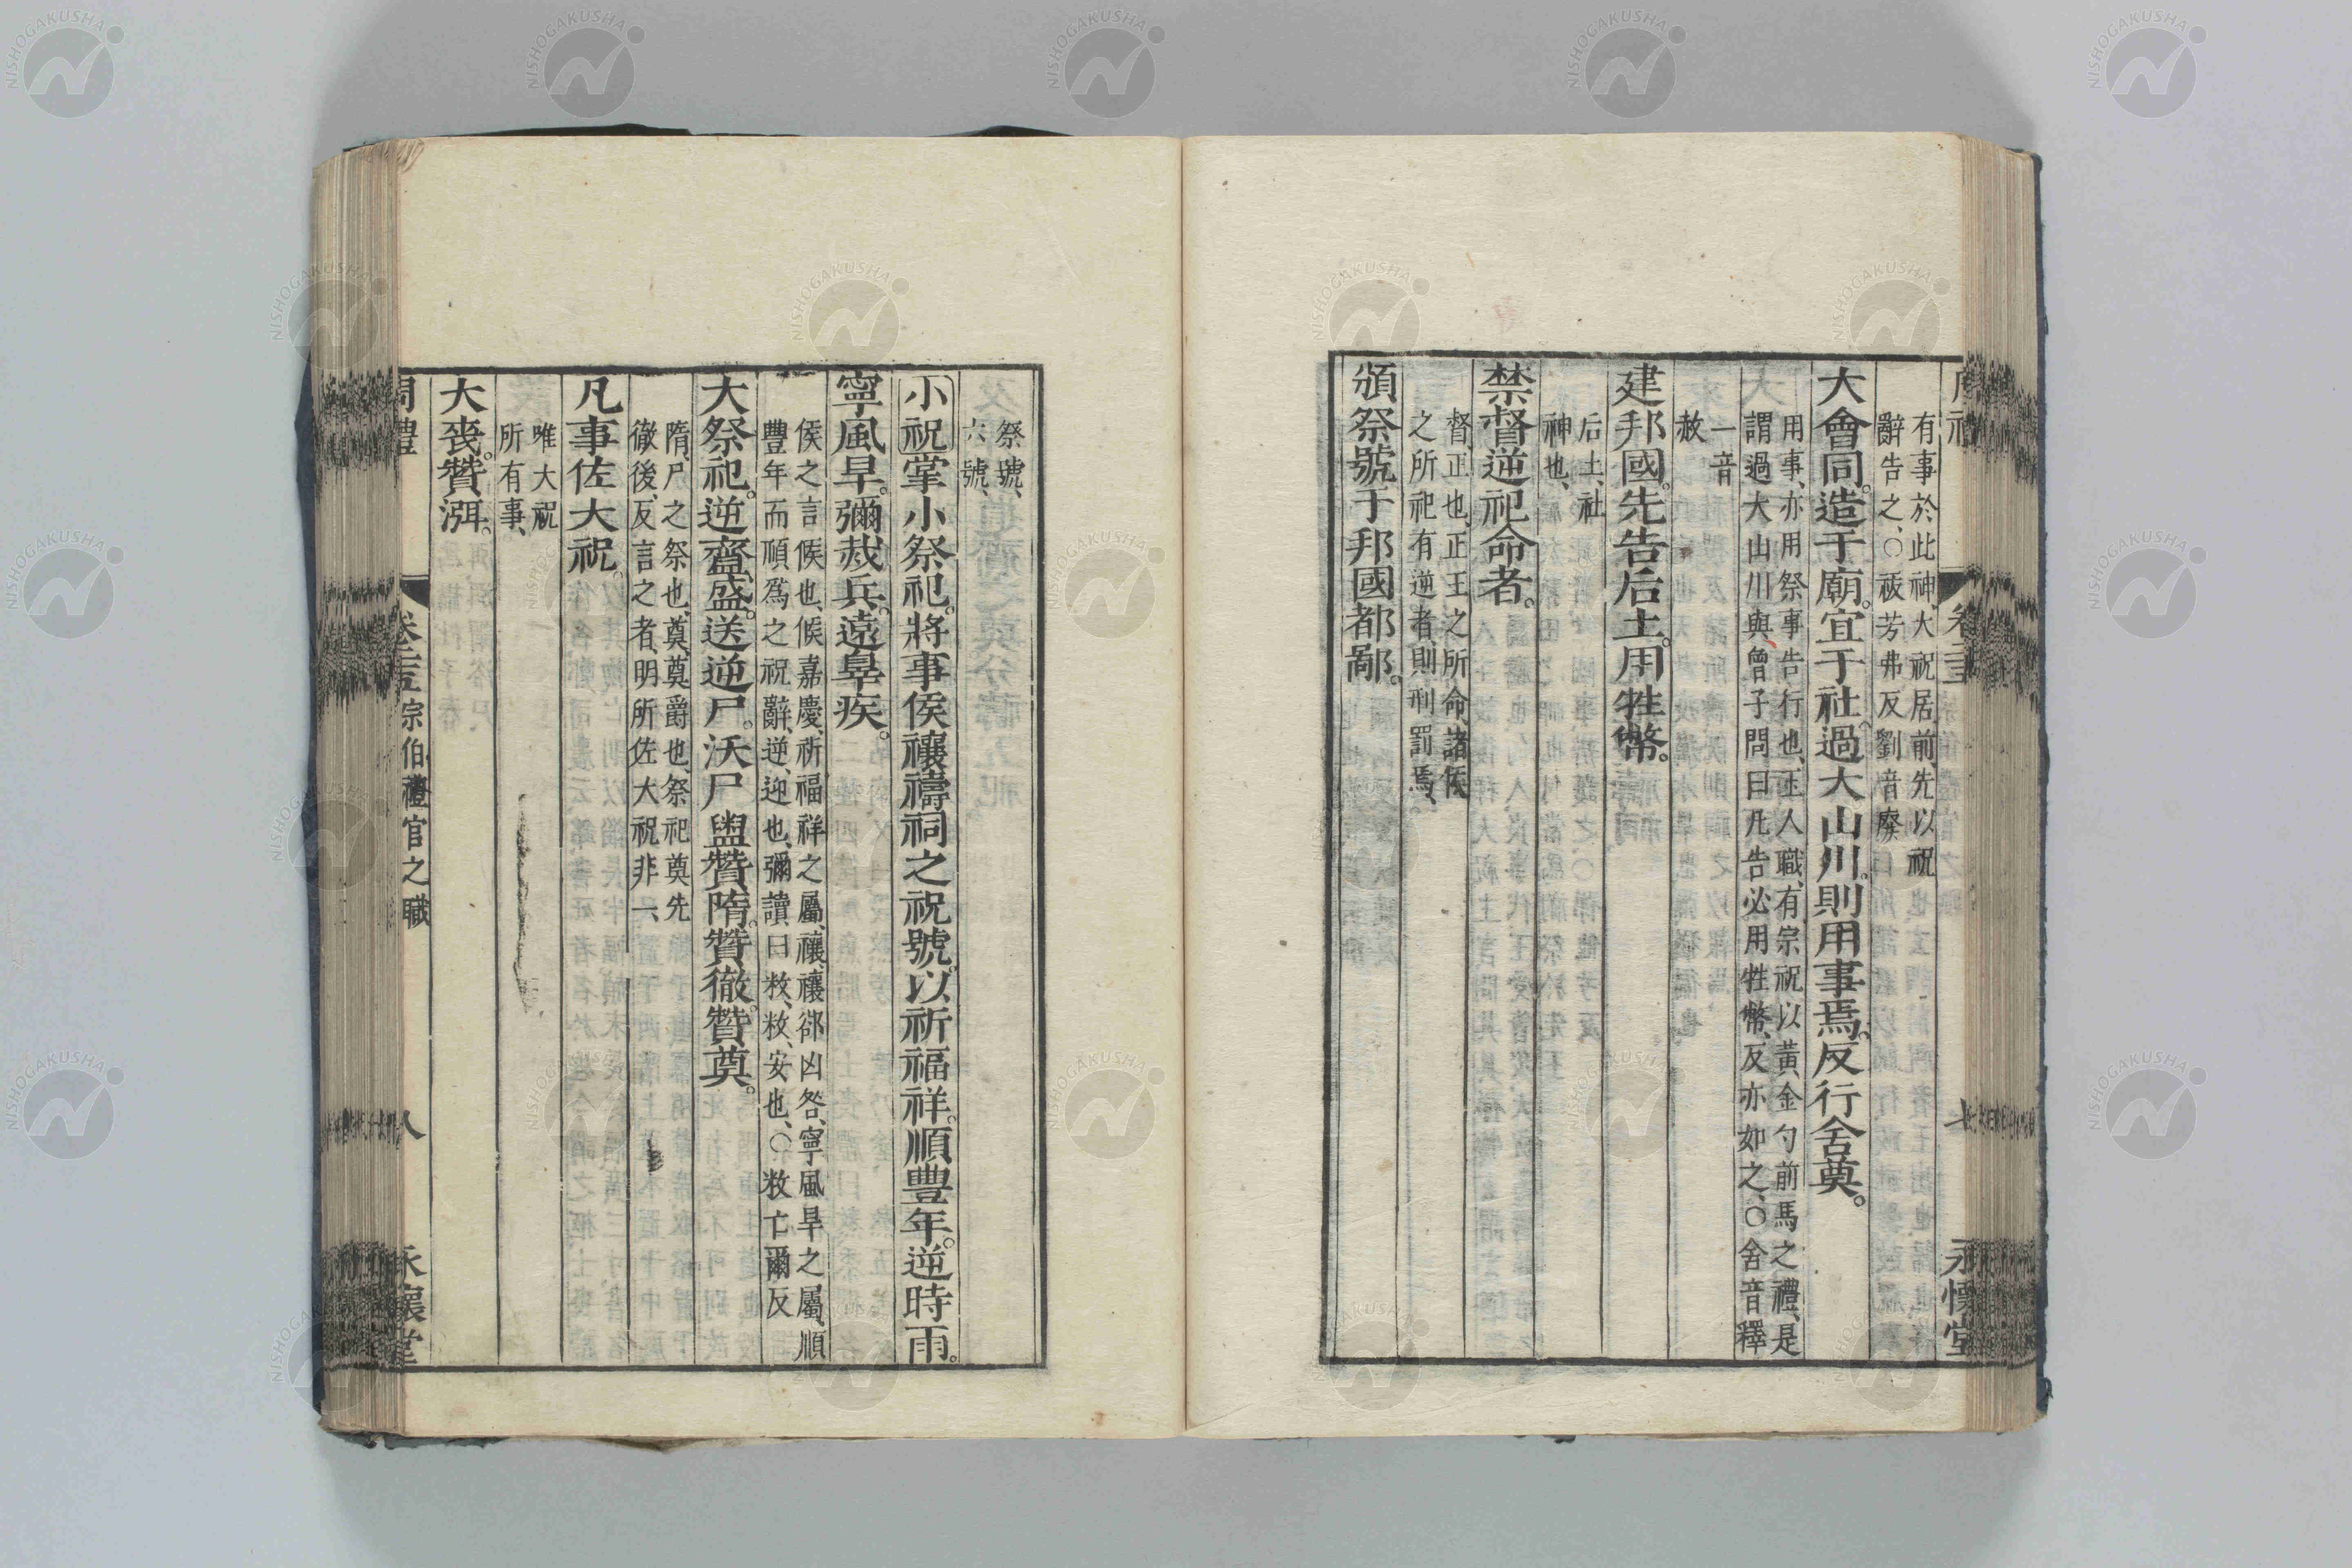 有事於此神、大祝居前、先以祝
辭告之、〇祓芳弗反劉音廢
大會同。造于廟。宜于社。過大山川。則用事焉。反行舍奠。
用事、亦用祭事告行也、玉人職、有宗祝以黃金勺前馬之禮、是
謂過大山川與、曾子問、曰凡告必用牲幣、反亦如之、〇舍音釋
一音
赦
建邦國。先告后土。用牲幣。
后土、社
神也、
禁督逆祀命者。
督、正也、正王之所命、諸侯
之所祀有逆者、則刑罰焉、
頒祭號于邦國都鄙。
永懷堂
祭號、
六號、
小祝掌小祭祀。將事侯禳禱祠之祝號。以祈福祥。順豐年。逆時雨。
寧風旱。彌烖兵。遠辠疾。
侯之言候也、候嘉慶、祈福祥之屬、禳、禳郤凶咎、寧風旱之屬、順
豐年而順爲之祝辭、逆、迎也、彌讀曰敉、敉、安也、〇敉亡爾反
大祭祀。逆齍盛。送逆尸。沃尸盥。贊隋。贊徹。贊奠。
隋、尸之祭也、奠、奠爵也、祭祀奠先
徹後、反言之者、明所佐大祝非一、
凡事佐大祝。
唯大祝
所有事、
大喪。贊渳。
周禮
卷二十五 宗伯禮官之職
八
永懷堂
NISHOGAKUSHA